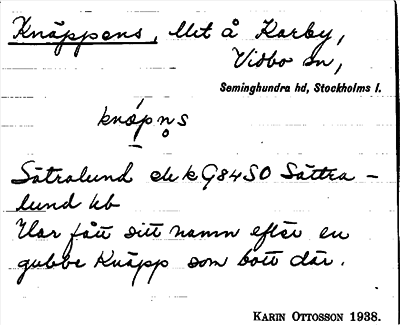 Knäppens, Mst å Karby,
Vidbo sn,
Seminghundra hd, Stockholms l.
knäpn̥s
Sätralund ek k G84SO Sättra-
lund kb
Har fått sitt namn efter en
gubbe Knäpp som bott där.
KARIN OTTOSSON 1938.